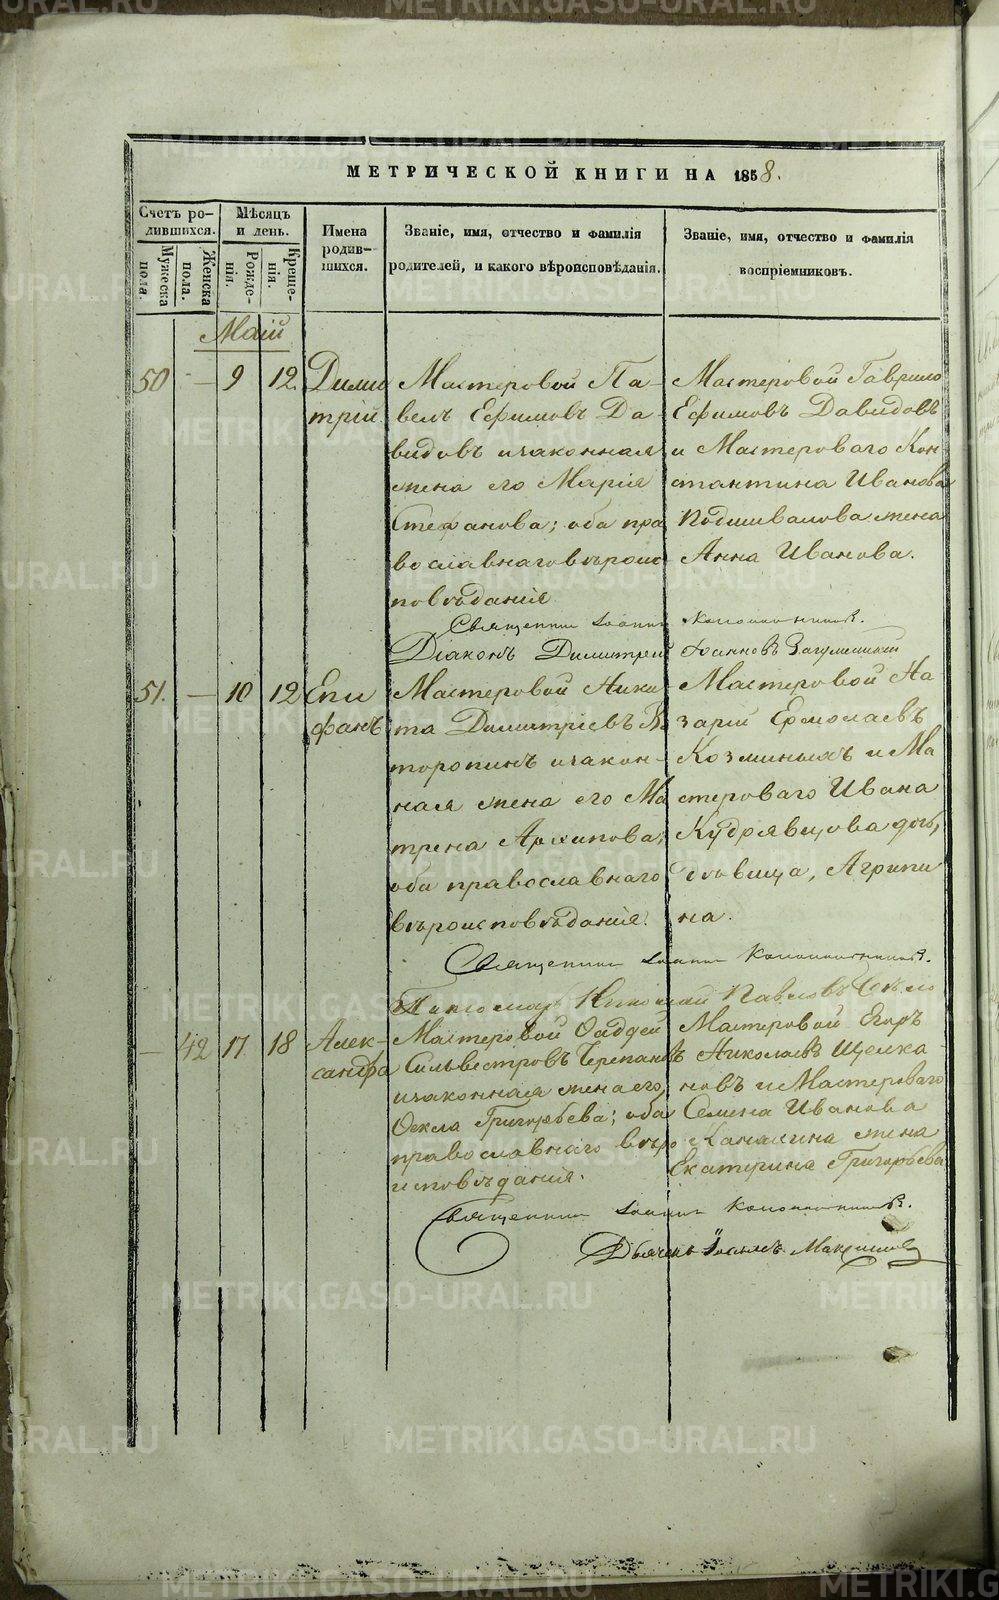 МЕТРИЧЕСКОЙ КНИГИ НА 1858.
Счетъ ро-
дившихся.
Мужеска
пола.
Женска
пола.
Мѣсяцъ
и день.
Рожде-
нія.
Креще-
нія.
Имена
родив-
шихся.
Званіе, имя, отчество и фамилія
родителей, и какого вѣроисповѣданія.
Званіе, имя, отчество и фамилія
воспріемниковъ.
Маій
50 — 9 12 Дими
трій.
Мастеровой Па-
велъ Ефимовъ Да-
видовъ изаконная
жена его Марія
Стефанова; оба пра
вославнаго вѣроис
повѣданія
Мастеровой Гаврило
Ефимовъ Давидовъ
и Мастероваго Кон
стантина Иванова
Подшивалова жена
Анна Иванова.
Священник Іоанн
Діаконъ Димитрій Іоанновъ
51. — 10 12 Епи
фанъ
Мастеровой Ники
та Димитріевъ
торопинъ изакон-
ная жена его Ма
трена Архипова;
оба православнаго
вѣроисповѣданія.
Мастеровой На-
зарій Ермолаевъ
Козминыхъ и Ма
стероваго Ивана
Кудрявцова дочь,
дѣвица, Агрипи
на.
Священник Іоанн
Пономарь Николай Павловъ
— 42 17 18 Алек-
сандра
Мастеровой Фаддей
Сильвестровъ Черепановъ
изаконная жена его,
Фекла Григорьева; оба
православнаго вѣро
исповѣданія.
Мастеровой Егоръ
Николаевъ Щелка-
новъ и Мастероваго
Семена Иванова
Канакина жена
Екатерина Григорьева
Священник Іоанн
Дьячекъ Максимов
METRIKI.GASO-URAL.RU